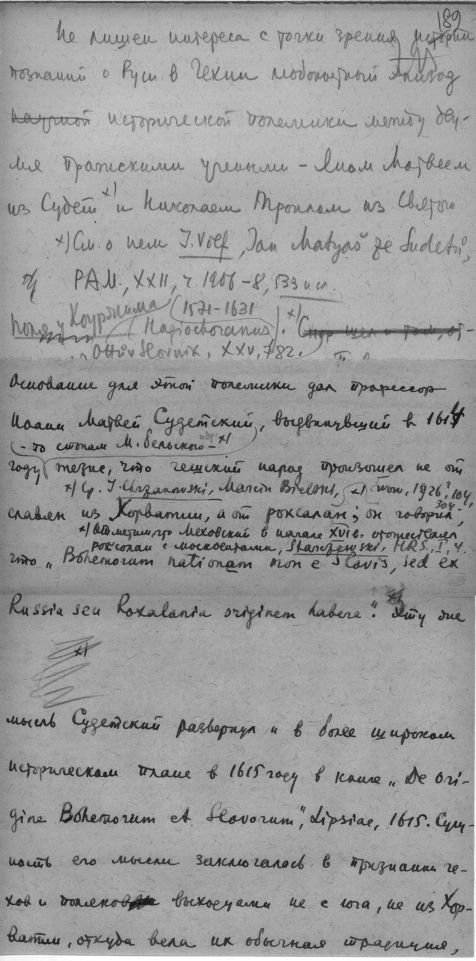 189
Не лишен интереса с точки зрения истории
познаний о Руси в Чехии любопытный эпизод
научной исторической полемики между дву-
мя пражскими учеными – Яном Матвеем
из Судет x) и Николаем Троилом из Святого
x) См. о нем J. Volf, Jan Matyáš ze Sudetů,
PAM., XXII, r. 1906–8, 533 и сл.
Поля у Кауржима 1571–1631
(Hagiochoranus). x) Спор шел о том, от-
Ottův Slovník, XXV, 782.
Основание для этой полемики дал профессор
Иоанн Матвей Судетский, выдвинувший в 1614
– по стопам М. Бельского – x)
году тезис, что чешский народ произошел не от
x) Ср. I. Chrzanowski, Marcin Bielski, 1926, 104,
304.
славян из Хорватии, а от роксалан; он говорил,
x) Отметим, что Меховский в начале XVI в. отожествлял
роксолан с московитами,
что „Bohemorum nationem non e Slavis, sed ex
Russia seu Roxalania originem habere". x) Эту же
x)
мысль Судетский развернул и в более широком
историческом плане в 1615 году в книге „De Ori-
gine Bohemorum et Slavorum", Lipsiae, 1615. Сущ-
ность его мысли заключалось в признании че-
хов и поляков выходцами не с юга, не из Хор-
ватии, откуда вела их обычная традиция,